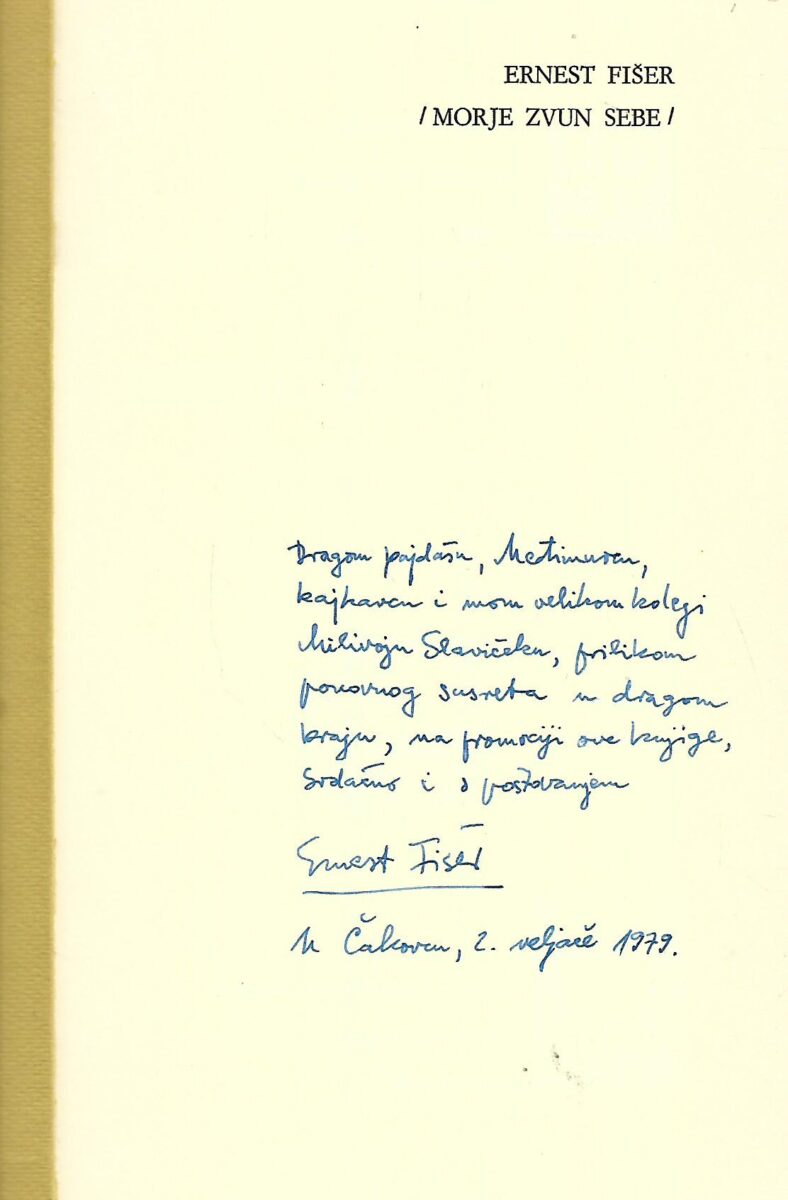 ERNEST FIŠER
/ MORJE ZVUN SEBE /
Dragom pajdašu, Međimurcu,
kajkavcu i mom velikom kolegi
Milivoju Slavičeku, prilikom
ponovnog susreta u dragom
kraju, na promociji ove knjige,
Srdačno i s poštovanjem
Ernest Fišer
U Čakovcu, 2. veljače 1979.